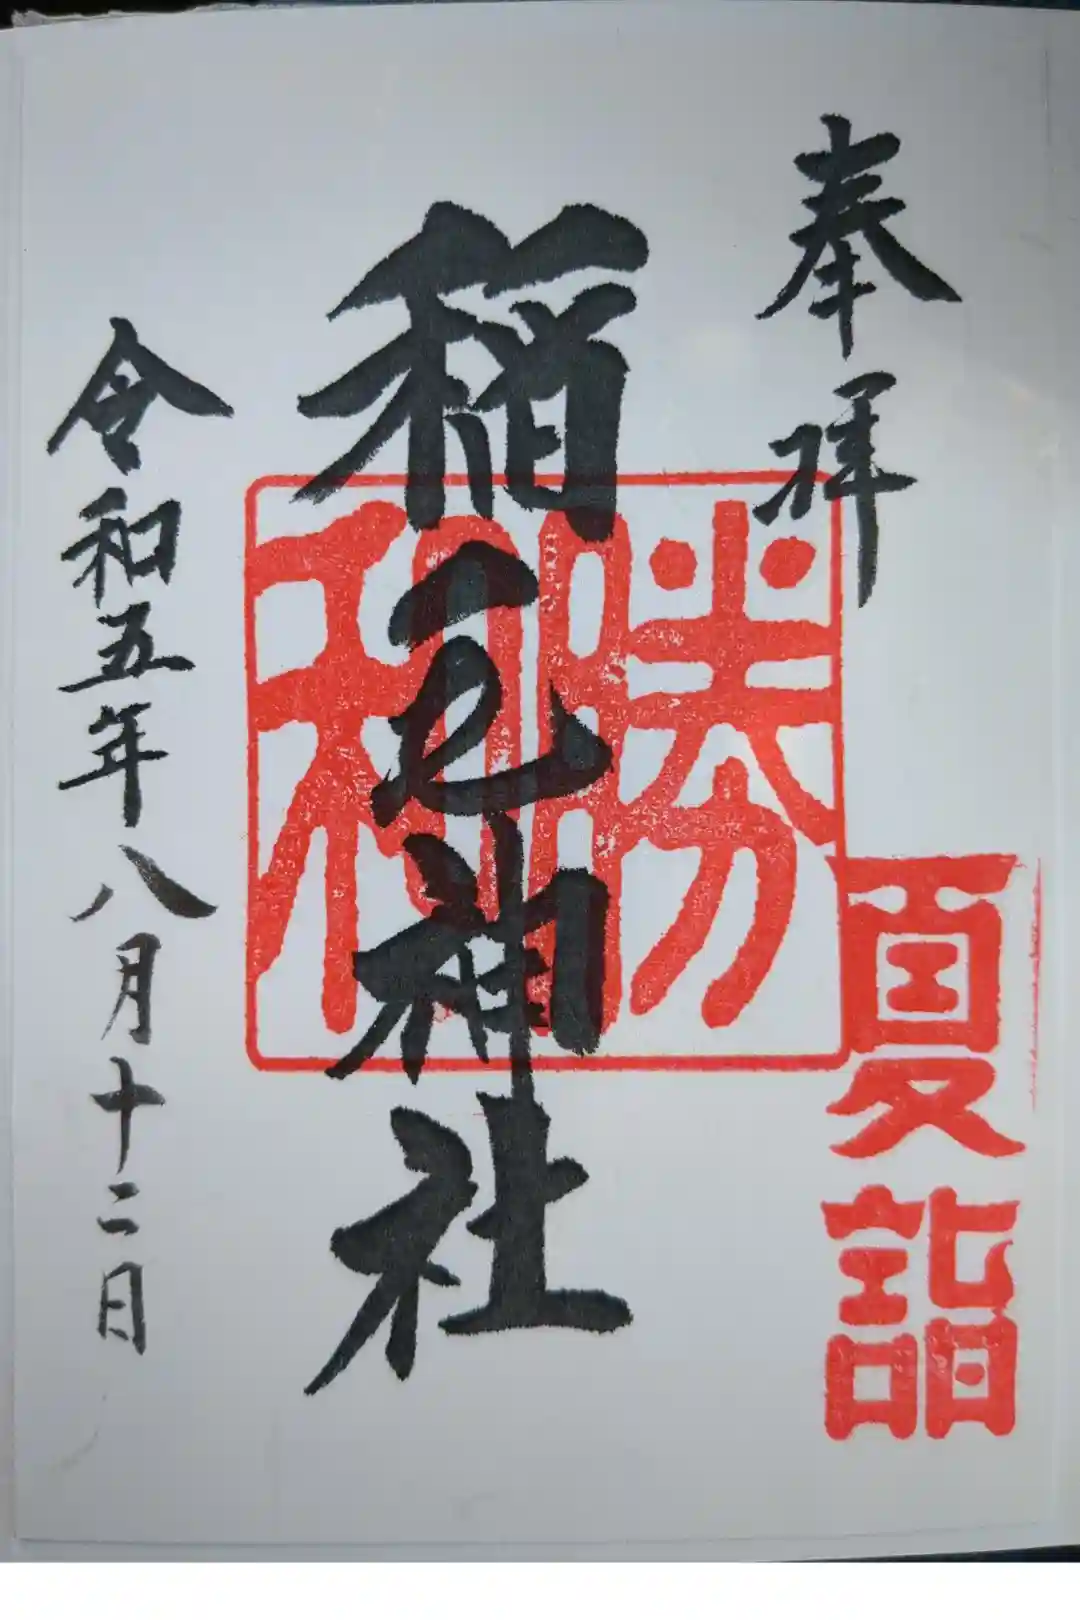 奉拝
夏詣
勝利
稲毛神社
令和五年八月十二日